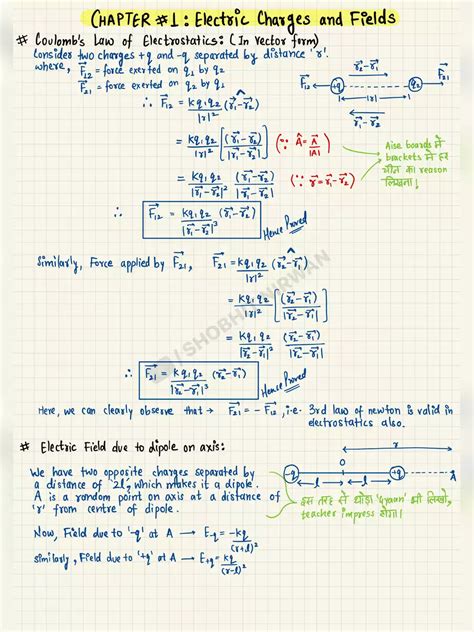 CHAPTER #1: Electric Charges and Fields
# Coulomb's Law of Electrostatics: (In vector form)
Consider two charges +q and -q separated by distance 'r'.
where, F⃗₁₂ = force exerted on q₁ by q₂
F⃗₂₁ = force exerted on q₂ by q₁
r⃗₂-r⃗₁
F⃗₁₂
F⃗₂₁
+q
q₂
|r|
r⃗₁-r⃗₂
∴ F⃗₁₂ = Kq₁q₂/|r|² (r⃗₁-r⃗₂)^
= Kq₁q₂/|r|² [(r⃗₁-r⃗₂)/|r⃗₁-r⃗₂|] (∵ Â = A⃗/|A|)
= Kq₁q₂/|r⃗₁-r⃗₂|² (r⃗₁-r⃗₂)/|r⃗₁-r⃗₂| (∵ r⃗ = r⃗₁-r⃗₂)
Aise boards में
brackets में हर
चीज का reason
लिखना!
∴ F⃗₁₂ = Kq₁q₂/|r⃗₁-r⃗₂|³ (r⃗₁-r⃗₂)
Hence Proved
Similarly, Force applied by F⃗₂₁, F⃗₂₁ = Kq₁q₂/|r|² (r⃗₂-r⃗₁)^
= Kq₁q₂/|r|² [(r⃗₂-r⃗₁)/|r⃗₂-r⃗₁|]
= Kq₁q₂/|r⃗₂-r⃗₁|² (r⃗₂-r⃗₁)/|r⃗₂-r⃗₁|
∴ F⃗₂₁ = Kq₁q₂/|r⃗₂-r⃗₁|³ (r⃗₂-r⃗₁)
Hence Proved
Here, we can clearly observe that → F⃗₂₁ = -F⃗₁₂, i.e. 3rd law of newton is valid in
electrostatics also.
# Electric Field due to dipole on axis:
We have two opposite charges separated by
a distance of '2l', which makes it a dipole.
A is a random point on axis at a distance of
'r' from centre of dipole.
r
O
-q
l
l
+q
A
इस तरह से थोड़ा 'gyaan' भी लिखो,
teacher impress होगा!
Now, Field due to '-q' at A → E-q = -Kq/(r+l)²
similarly, Field due to '+q' at A → E+q = Kq/(r-l)²
SHOBHIT NIRWAN